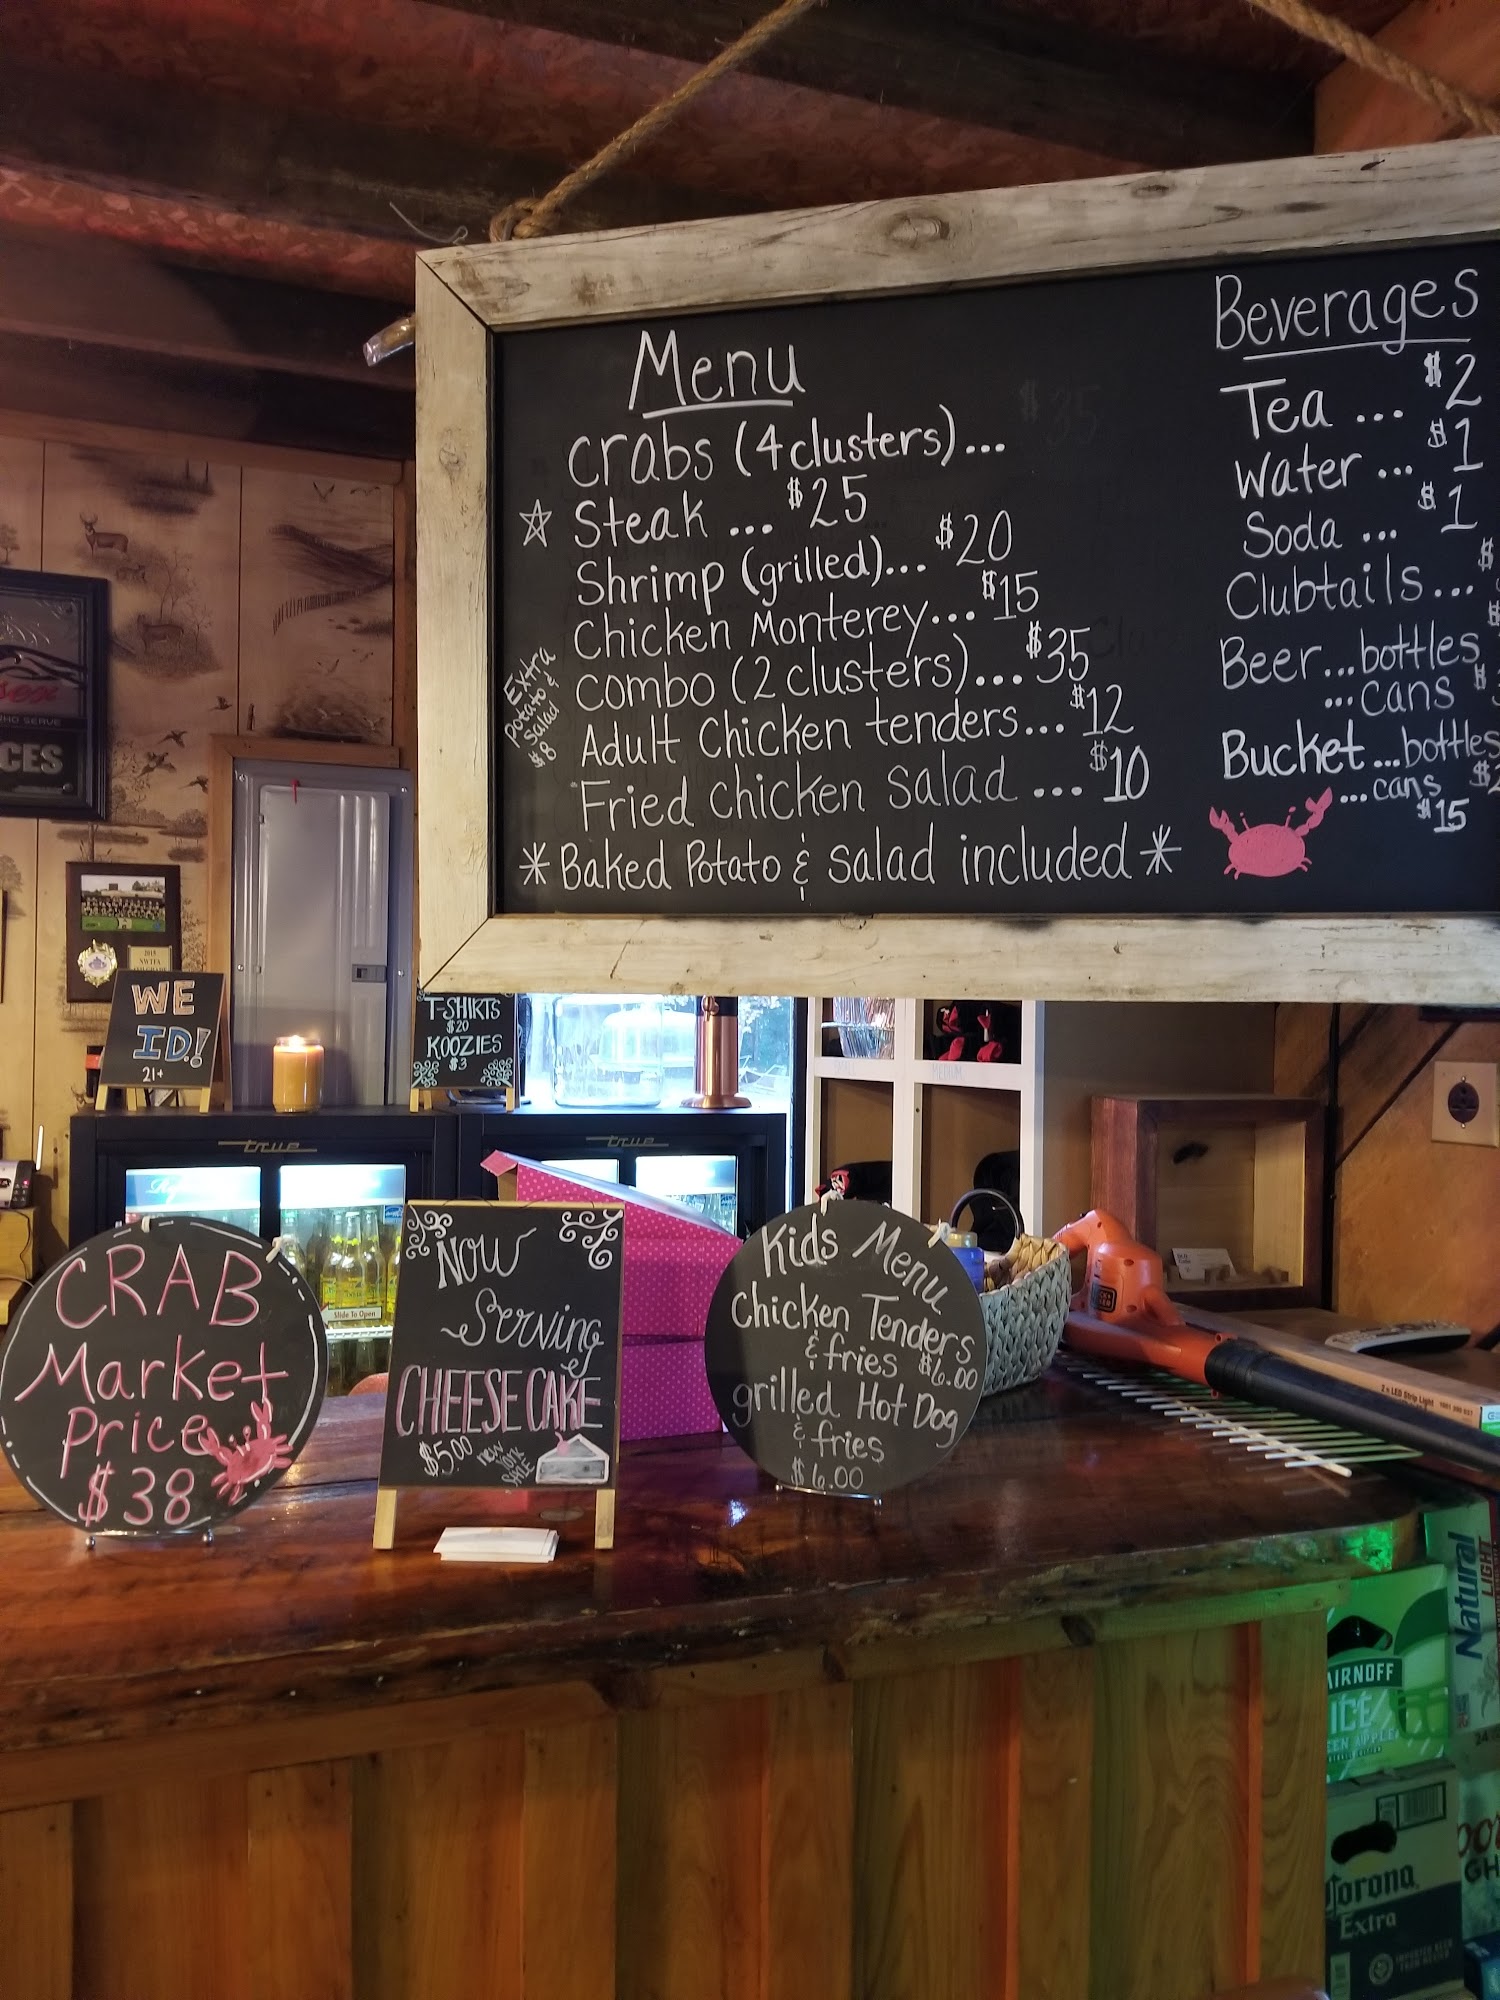 Menu
Crabs (4 clusters)... $35
☆ Steak ... $25
Shrimp (grilled)... $20
Chicken Monterey... $15
Combo (2 clusters)... $35
Adult Chicken tenders... $12
Fried Chicken Salad ... $10
*Baked Potato & Salad included*
Extra
potato &
Salad
$8
Beverages
Tea ... $2
Water ... $1
Soda ... $1
Clubtails... $
Beer...bottles $
...cans $
Bucket...bottles
...cans
$15
CES
2015
WE
ID!
21+
T-SHIRTS
$20
KOOZIES
$3
true
true
Slide To Open
MEDIUM
CRAB
Market
Price
$38
Now
Serving
CHEESECAKE
$5.00
new
york
Kids Menu
Chicken Tenders
& fries $6.00
grilled Hot Dog
& fries
$6.00
2 x LED Strip Light
Natural
LIGHT
IRNOFF
ICE
EEN APPLE
Corona
Extra